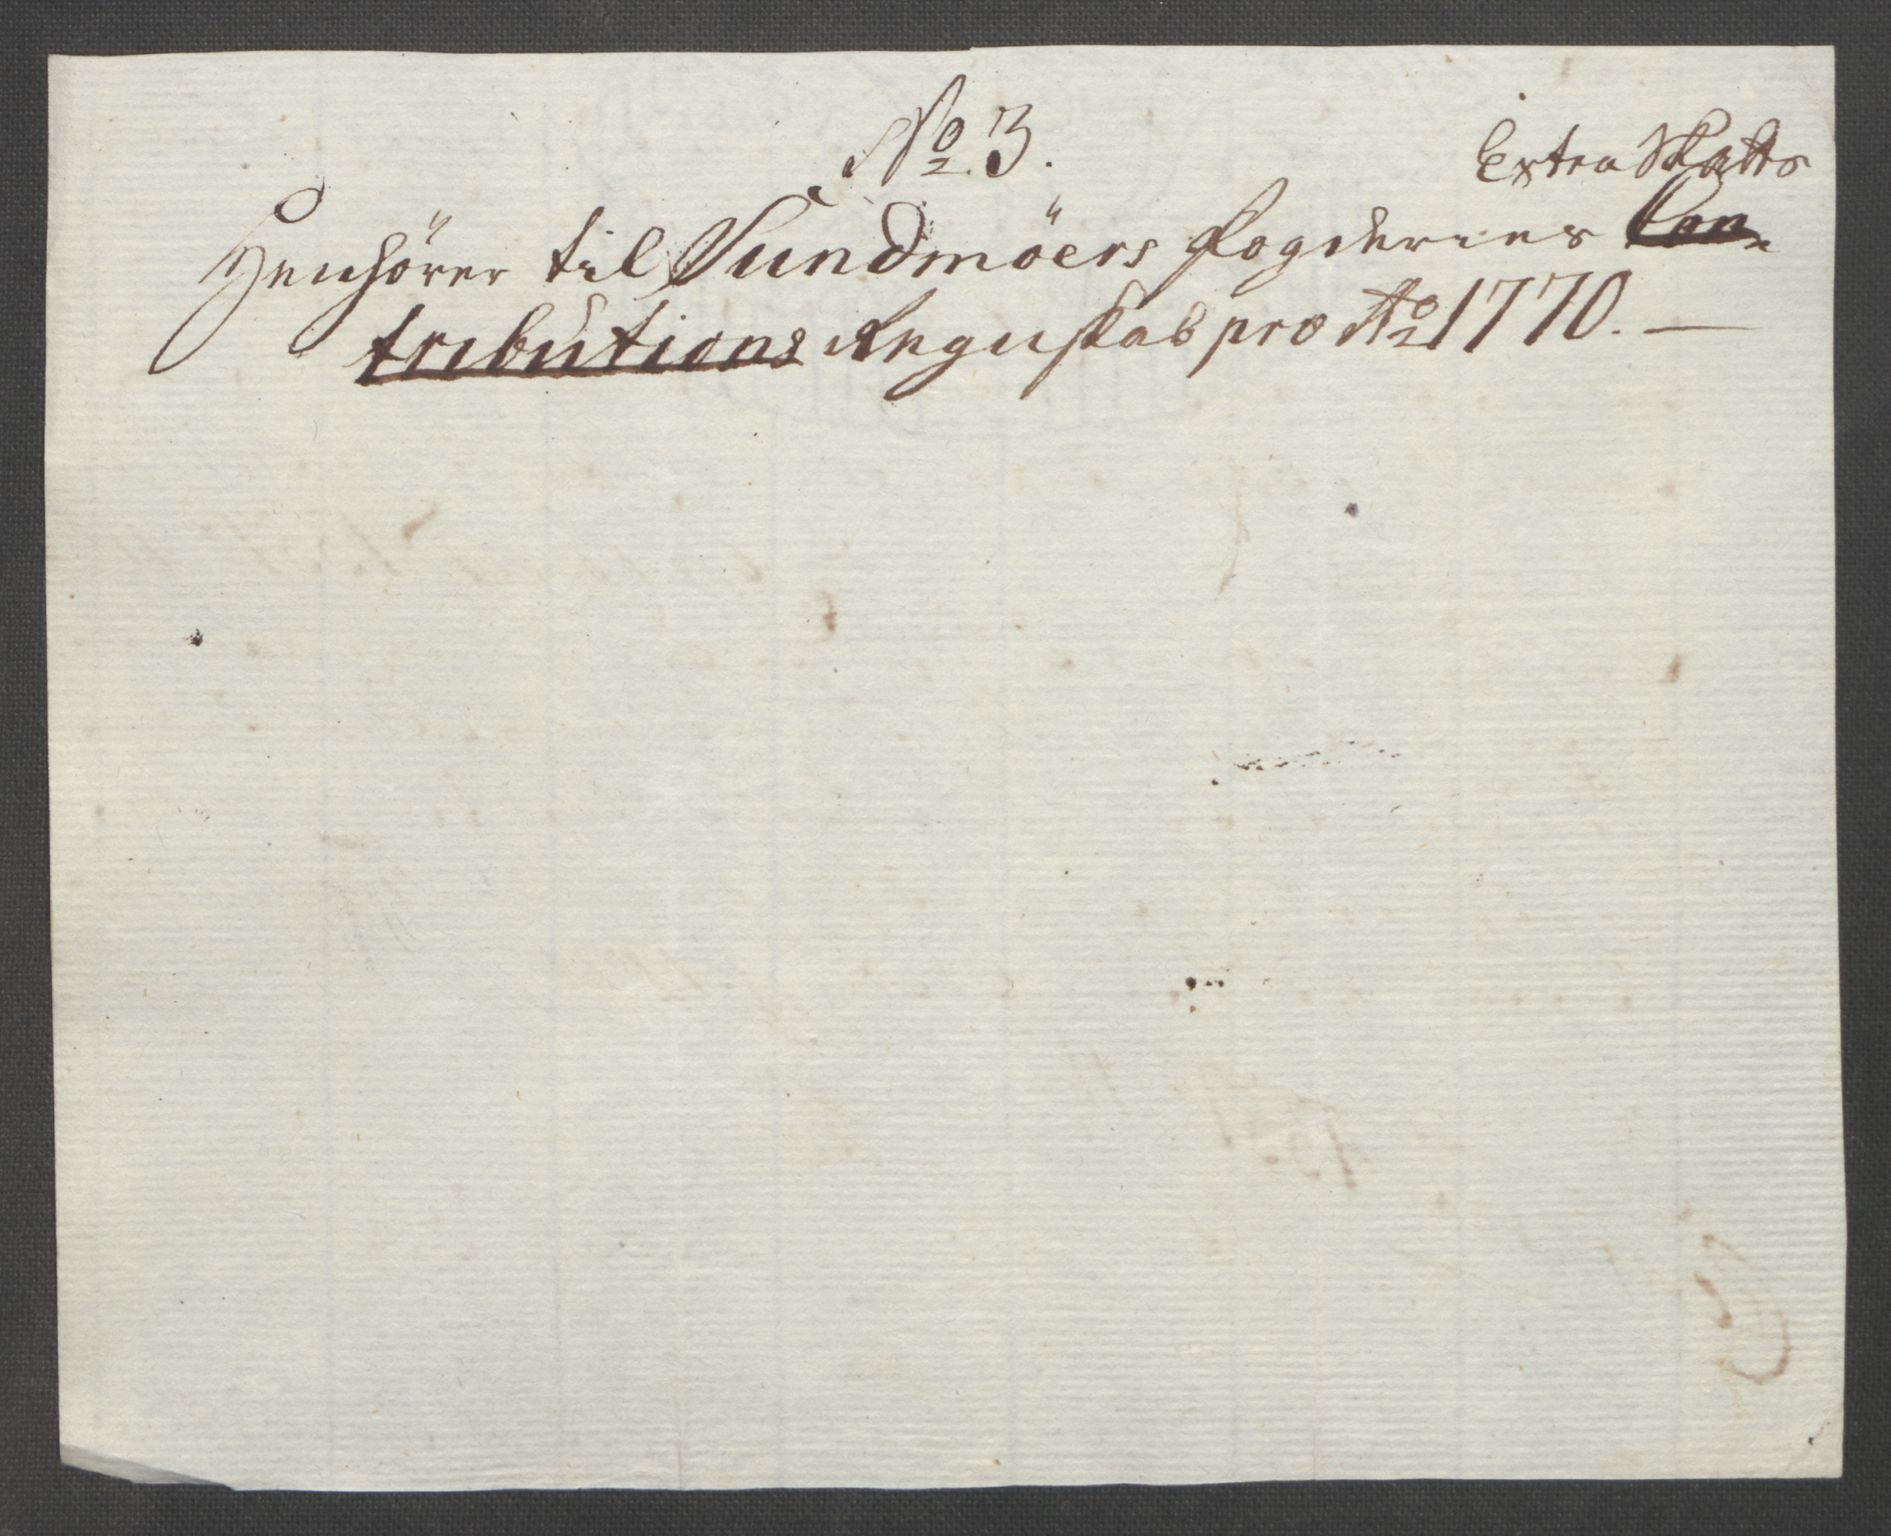 No 3.
Extra Skatts
Henhörer til Sundmöers Fogderies Con-
tributions Regnskab pro Ao 1770. —